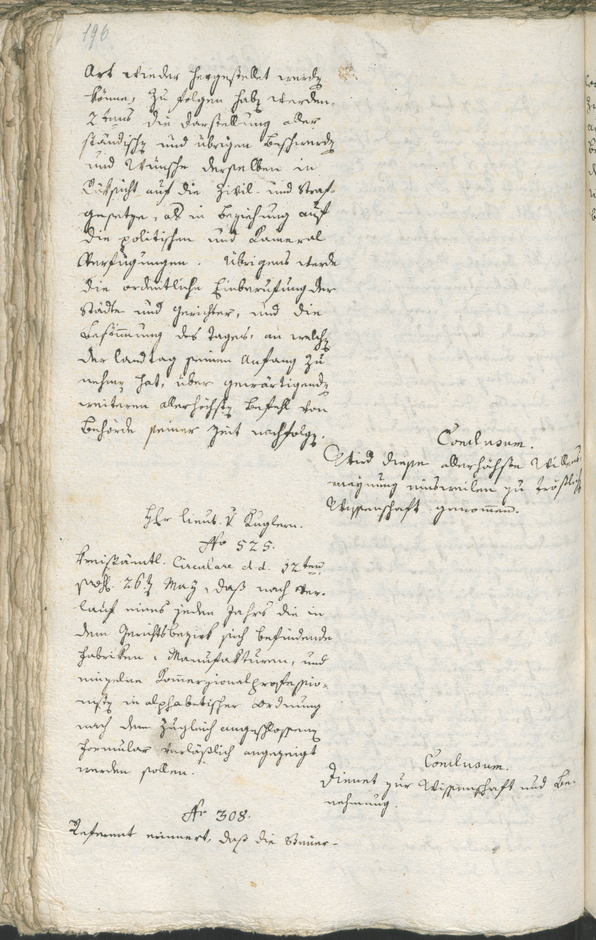 196.
Art wieder hergestellet werdẽ
könne, zu folgen habẽ werden.
2tens die Darstellung aller
ständischẽ und übrigen Beschwerdẽ
und Wünsche derselben in
Rüksicht auf die Zivil- und Straf-
gesetze, als in Beziehung auf
die politischen und Kameral
Verfügungen. Übrigens werde
die ordentliche Einberufung der
Städte und Gerichter, und die
Bestimmung des Tages, an welchẽ
der Landtag seinen Anfang zu
nehmẽ hat, über gewärtigendẽ
weiteren allerhöchstẽ Befehl von
Behörde seiner Zeit nachfolgẽ.
Conclusum.
Wird diese allerhöchste Willens
maynung einsweilen zu tröstlich
Wissenschaft genommen.
Hr Lieut. v Kuglern.
No 525.
Kreisämtl. Circulare d.d. 12ten
26t May, daß nach Ver-
lauf eines jeden Jahrs die in
dem Gerichtsbezirk sich befindende
Fabriken, Manufakturen, und
einzelne Kommerzialprofessio-
nistẽ in alphabetischer Ordnung
nach dem zugleich angeschlossenẽ
Formular verläßlich angezeigt
werden sollen.
Conclusum.
Dienet zur Wissenschaft und Be-
nehmung.
No 308.
Referent erinnert, daß die Steuer-